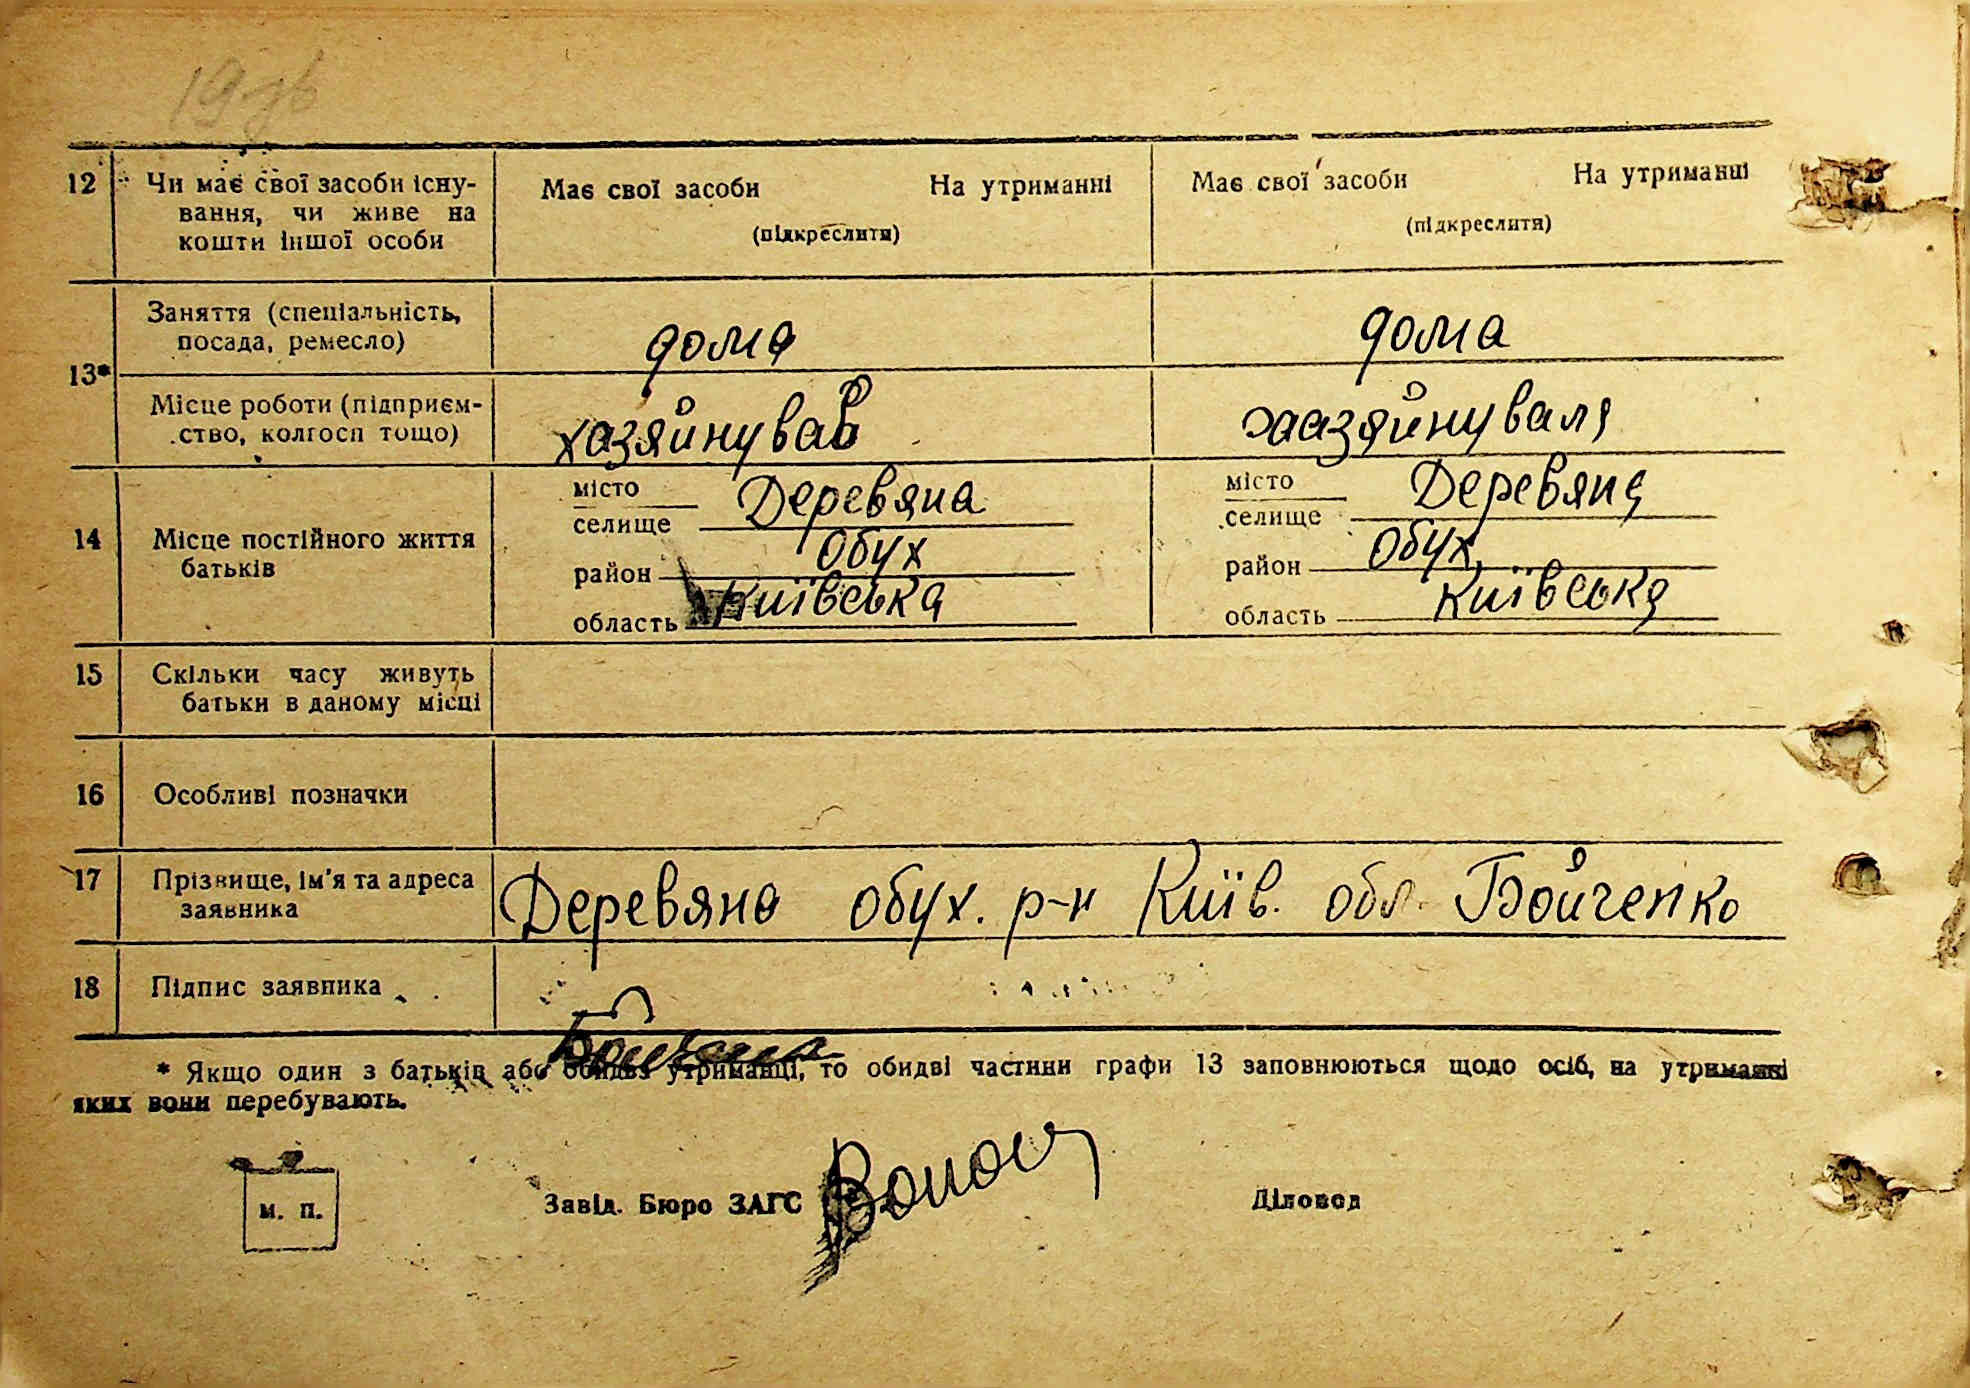 19 зв
12 Чи має свої засоби існу- Має свої засоби На утриманні Має свої засоби На утриманні
вання, чи живе на (підкреслити) (підкреслити)
кошти іншої особи
13* Заняття (спеціальність, дома дома
посада, ремесло)
Місце роботи (підприєм- хазяйнував хаазяйнувала
ство, колгосп тощо)
14 Місце постійного життя місто Деревяна місто Деревяна
батьків селище селище
район Обух район Обух.
область Київська область Київська
15 Скільки часу живуть
батьки в даному місці
16 Особливі позначки
17 Прізвище, ім'я та адреса Деревяна обух. р-н Київ. обл. Бойченко
заявника
18 Підпис заявника
* Якщо один з батьків або обидві утриманці, то обидві частини графи 13 заповнюються щодо осіб, на утриманні
яких вони перебувають.
м. п. Завід. Бюро ЗАГС Діловод